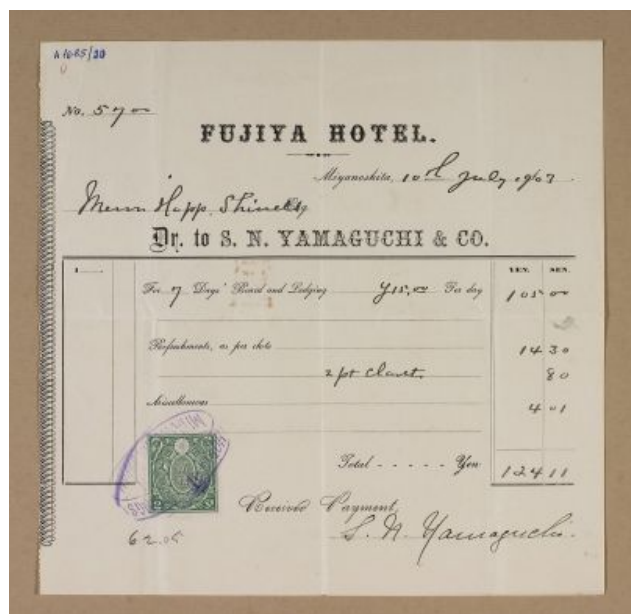 A1085/30
No. 570-
FUJIYA HOTEL.
Miyanoshita, 10th July 1903
Messrs Happ. Shinell
Dr. to S. N. YAMAGUCHI & CO.
YEN. SEN.
For 7 Days' Board and Lodging Y15.00 Per day 105 00
Refreshments, as per chits 14 30
2 pt Claret. 80
Miscellaneous 4 01
Total - - - - - Yen 124 11
Received Payment,
S. N. Yamaguchi.
62.05